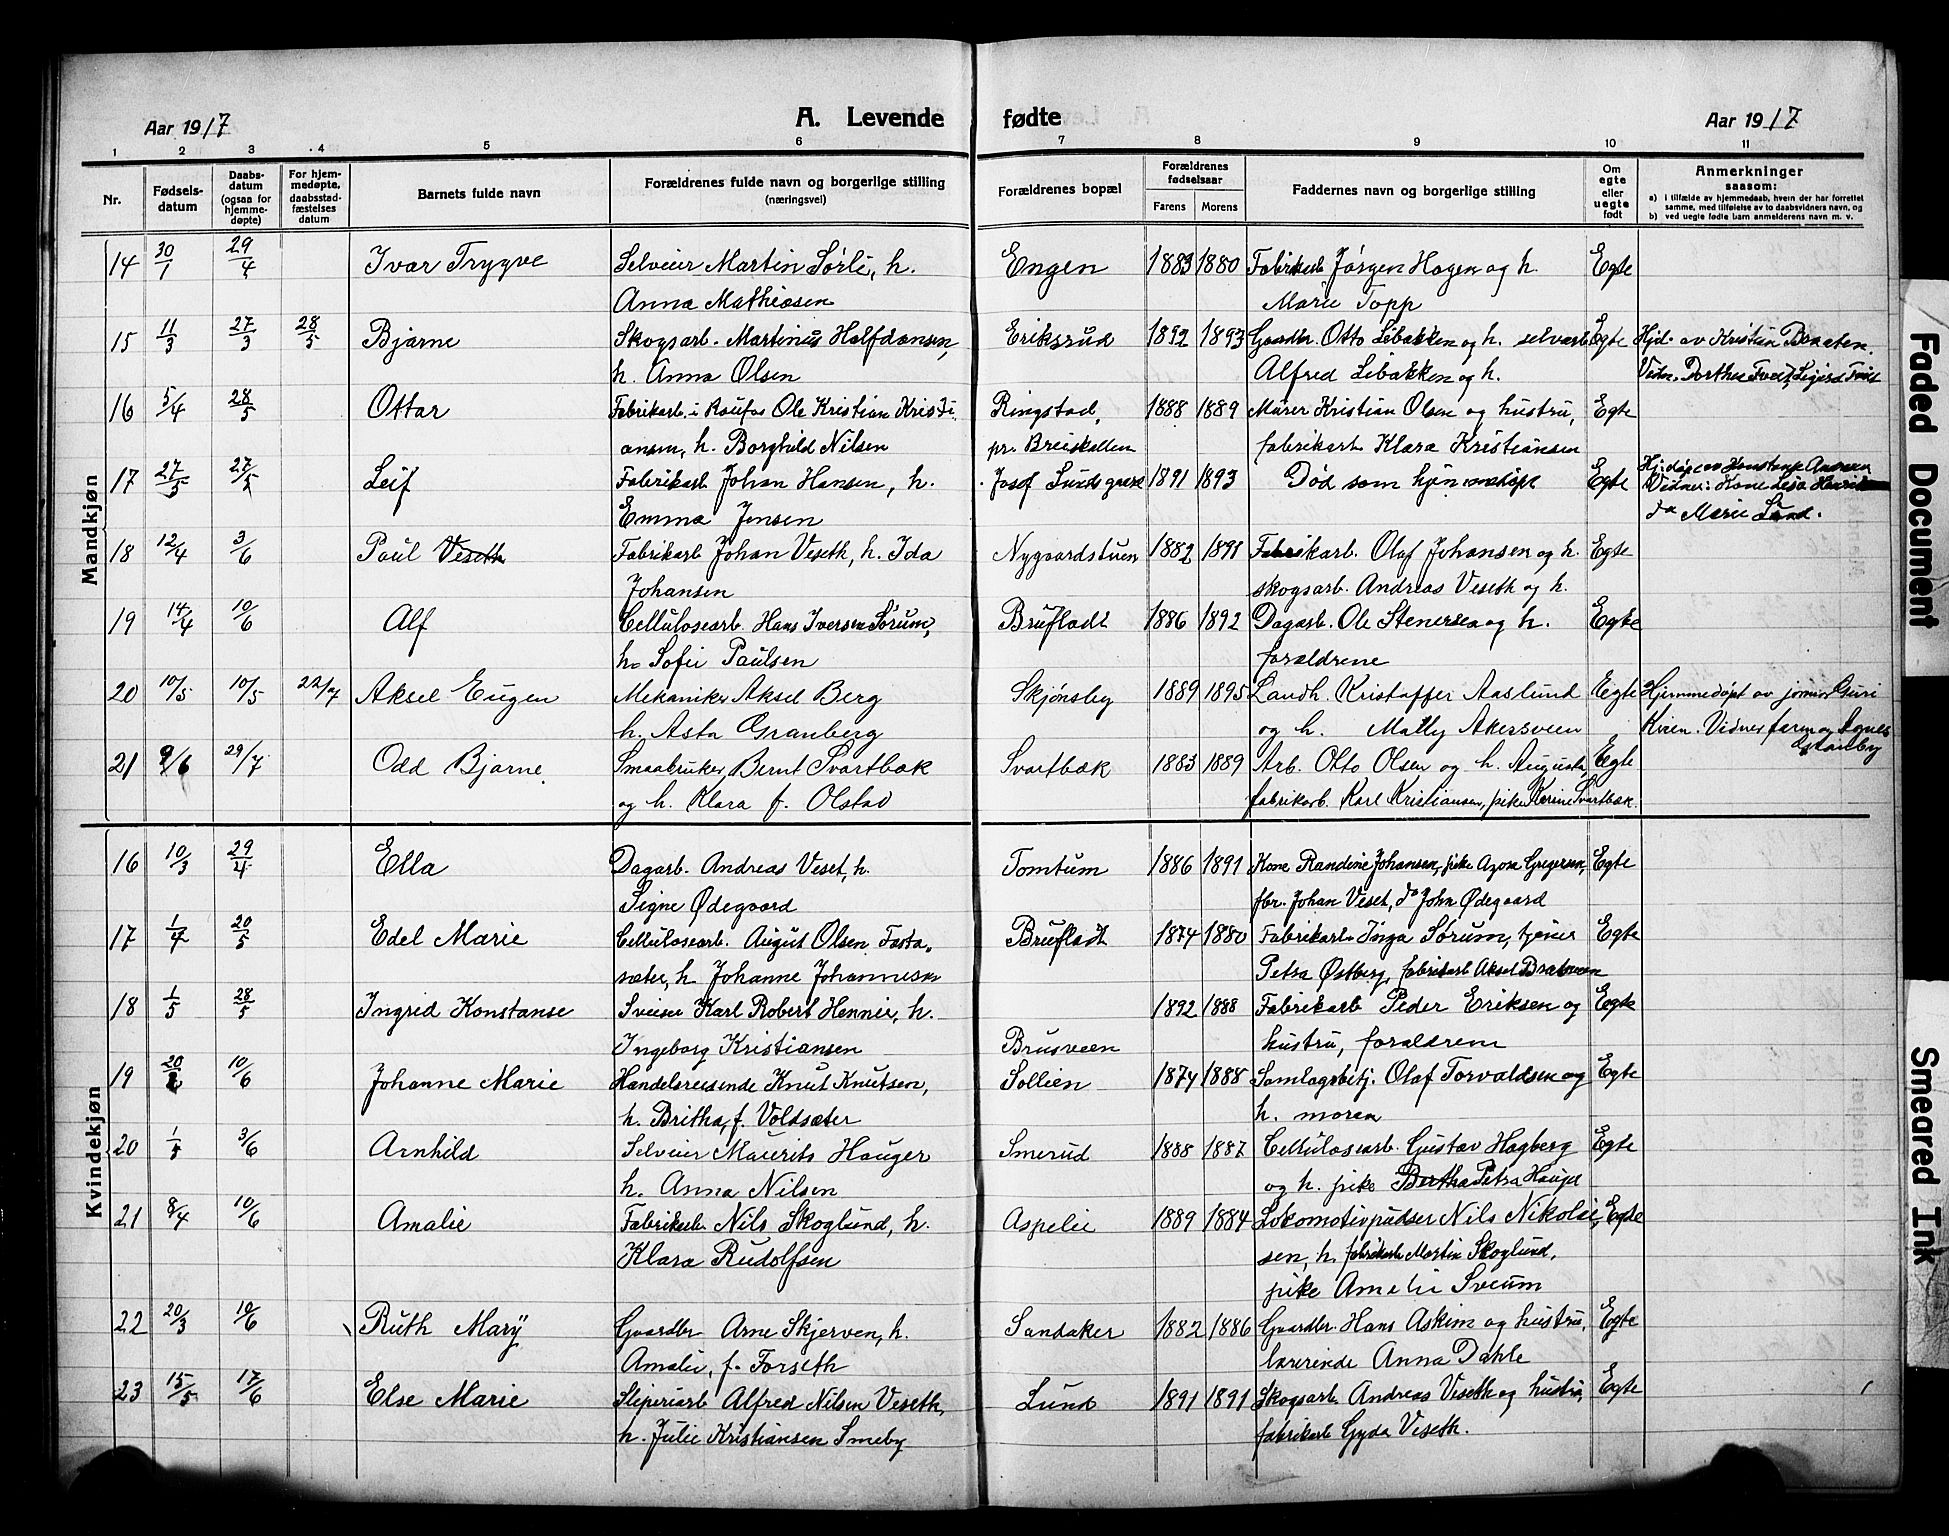 Aar 1917 A. Levende fødte Aar 1917
1 2 3 4 5 6 7 8 9 10 11
Nr. Fødsels-datum Daabs-datum (ogsaa for hjemme-døpte) For hjem-medøpte, daabsstad-fæstelses datum Barnets fulde navn Forældrenes fulde navn og borgerlige stilling (næringsvei) Forældrenes bopæl Forældrenes fødselsaar Farens Morens Faddernes navn og borgerlige stilling Om egte eller uegte født Anmerkninger saasom:
a) i tilfælde av hjemmedaab, hvem der har forrettet samme, med tilføielse av to daabsvidners navn, og
b) ved uegte fødte barn anmelderens navn m. v.
Mandkjøn
14 30/1 29/4 Ivar Trygve Selveier Martin Sørli, h. Engen 1883 1880 Fabrikarb Jørgen Hagen og h. Egte
Anna Mathiasen Marie Topp
15 11/3 27/3 28/5 Bjarne Skogsarb. Martinus Halfdansen, Eriksrud 1892 1893 Gaardbr. Otto Libakken og h. selvarb Egte Hjd. av Kristian Braaten.
h. Anna Olsen Alfred Libakken og h. Vidn. Dorthea
16 5/4 28/5 Ottar Fabrikarb. i Raufos Ole Kristian Kristi- Ringstad, 1888 1889 Murer Kristian Olsen og hustru, Egte
ansen, h. Borghild Nilsen pr. Breiskallen fabrikarb Klara Kristiansen
17 27/5 27/5 Leif Fabrikarb Johan Hansen, h. Josef Lundsgaard 1891 1893 Død som hjemmedøpt Egte Hj.døpt av Konstanse
Emma Jensen Vidner: Kone
do Marie Lund.
18 12/4 3/6 Paul Veseth Fabrikarb Johan Veseth, h. Ida Nygaardstuen 1882 1891 Fabrikarb. Olaf Johansen og h. Egte
Johansen skogsarb. Andreas Veseth og h.
19 14/4 10/6 Alf Cellulosearb. Hans Iversen Sørum, Brufladt 1886 1892 Dagarb. Ole Stenersen og h. Egte
h. Sofie Paulsen forældrene
20 10/5 10/5 22/7 Aksel Eugen Mekaniker Aksel Berg Skjønsby 1889 1895 Landh. Kristoffer Aaslund Egte Hjemmedøpt av jomor Guri
h. Asta Granberg og h. Mally Akersveen Kvien. Vidner farm og Agnes
21 9/6 29/7 Odd Bjarne. Smaabruker Bernt Svartbæk Svartbæk 1883 1889 Arb. Otto Olsen og h. Augusta, Egte
og h. Klara f. Olstad fabrikarb. Karl Kristiansen, pike Karine Svartbæk.
Kvindekjøn
16 10/3 29/4 Ella Dagarb. Andreas Veset, h. Tomtum 1886 1891 Kone Randine Johansen, pike Agora Gregersen, Egte
Signe Ødegaard fbr. Johan Veset, do John Ødegaard
17 1/4 20/5 Edel Marie Cellulosearb. August Olsen Fasta- Brufladt 1874 1880 Fabrikarb Inga Sørum, tjener Egte
sæter, h. Johanne Johannesen Petra Østberg, fabrikarb Aksel Bratveen
18 1/5 28/5 Ingrid Konstanse Sveiser Karl Robert Hennie, h. 1892 1888 Fabrikarb Peder Eriksen og Egte
Ingeborg Kristiansen Brusveen hustru, forældrene
19 10/6 Johanne Marie Handelsreisende Knut Knutsen, Sollien 1874 1888 Samlagsbetj. Olaf Torvaldsen og Egte
h. Britha, f. Voldsæter h. moren
20 1/5 3/6 Arnhild Selveier Maurits Hauger Smerud 1888 1887 Cellulosearb. Gustav Hagberg Egte
h. Anna Nilsen og h. pike Bertha Petra Hauger
21 8/4 10/6 Amalie Fabrikarb Nils Skoglund, h. Aspelie 1889 1884 Lokomotivpudser Nils Nikolai- Egte
Klara Rudolfsen sen, h. fabrikarb Martin Skoglund,
pike Amalie Sveum
22 20/3 10/6 Ruth Mary Gaardbr Arne Skjerven, h. Sandaker 1882 1886 Gaardbr. Hans Askim og hustru, Egte
Amalie, f. Forseth lærerinde Anna Dahle
23 15/5 17/6 Else Marie Sliperiarb Alfred Nilsen Veseth, Lund 1891 1891 Skogsarb. Andreas Veseth og hustru, Egte
h. Julie Kristiansen Smeby fabrikarb Gyda Veseth.
Faded Document
Smeared Ink